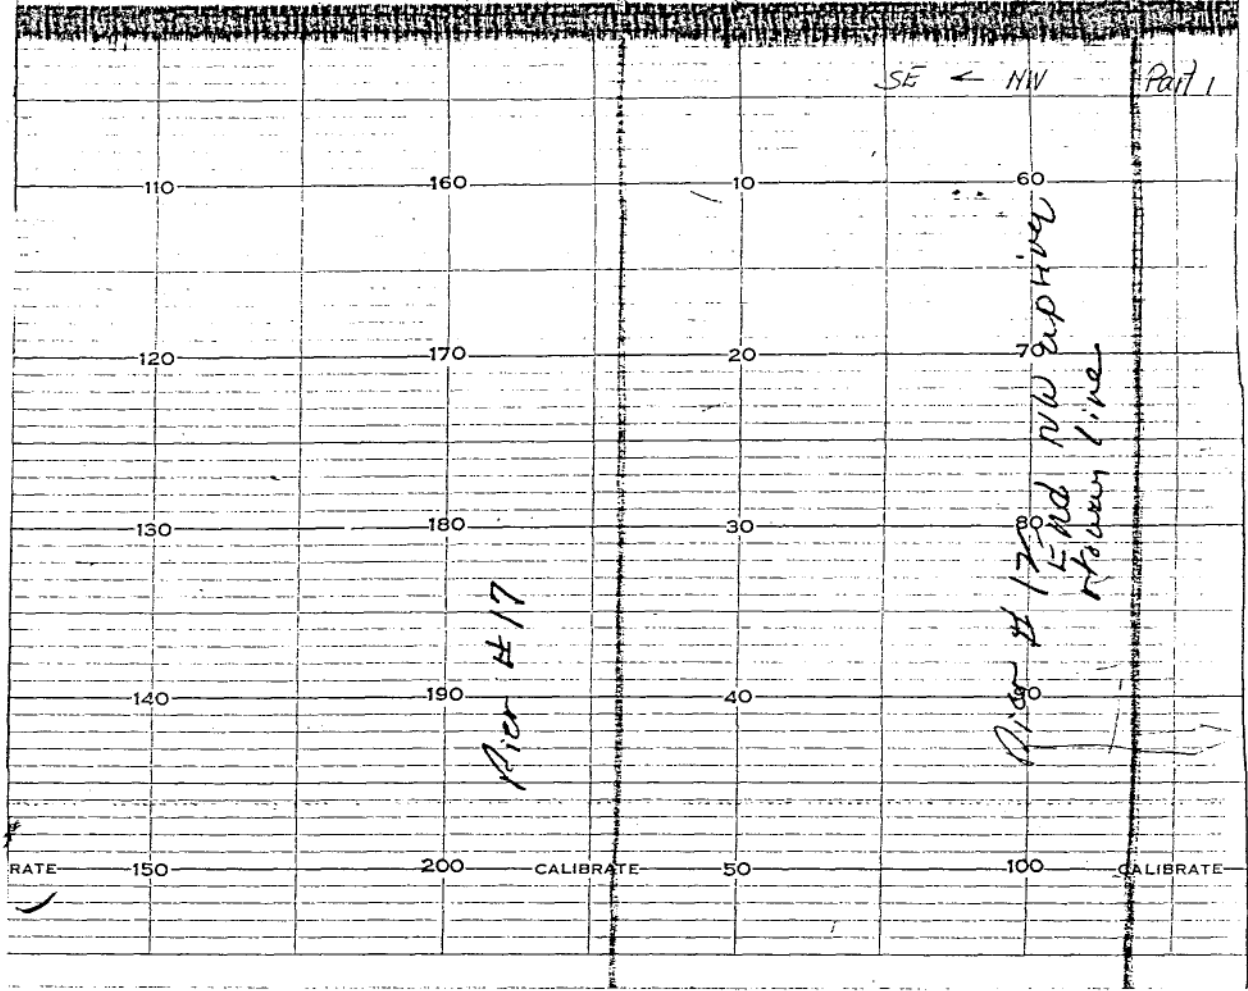 SE ← NW Part 1
110 160 10 60
120 170 20 70
130 180 30 80
140 190 40 90
RATE 150 200 CALIBRATE 50 100 CALIBRATE
Pier # 17
Pier # 17
End NW
line